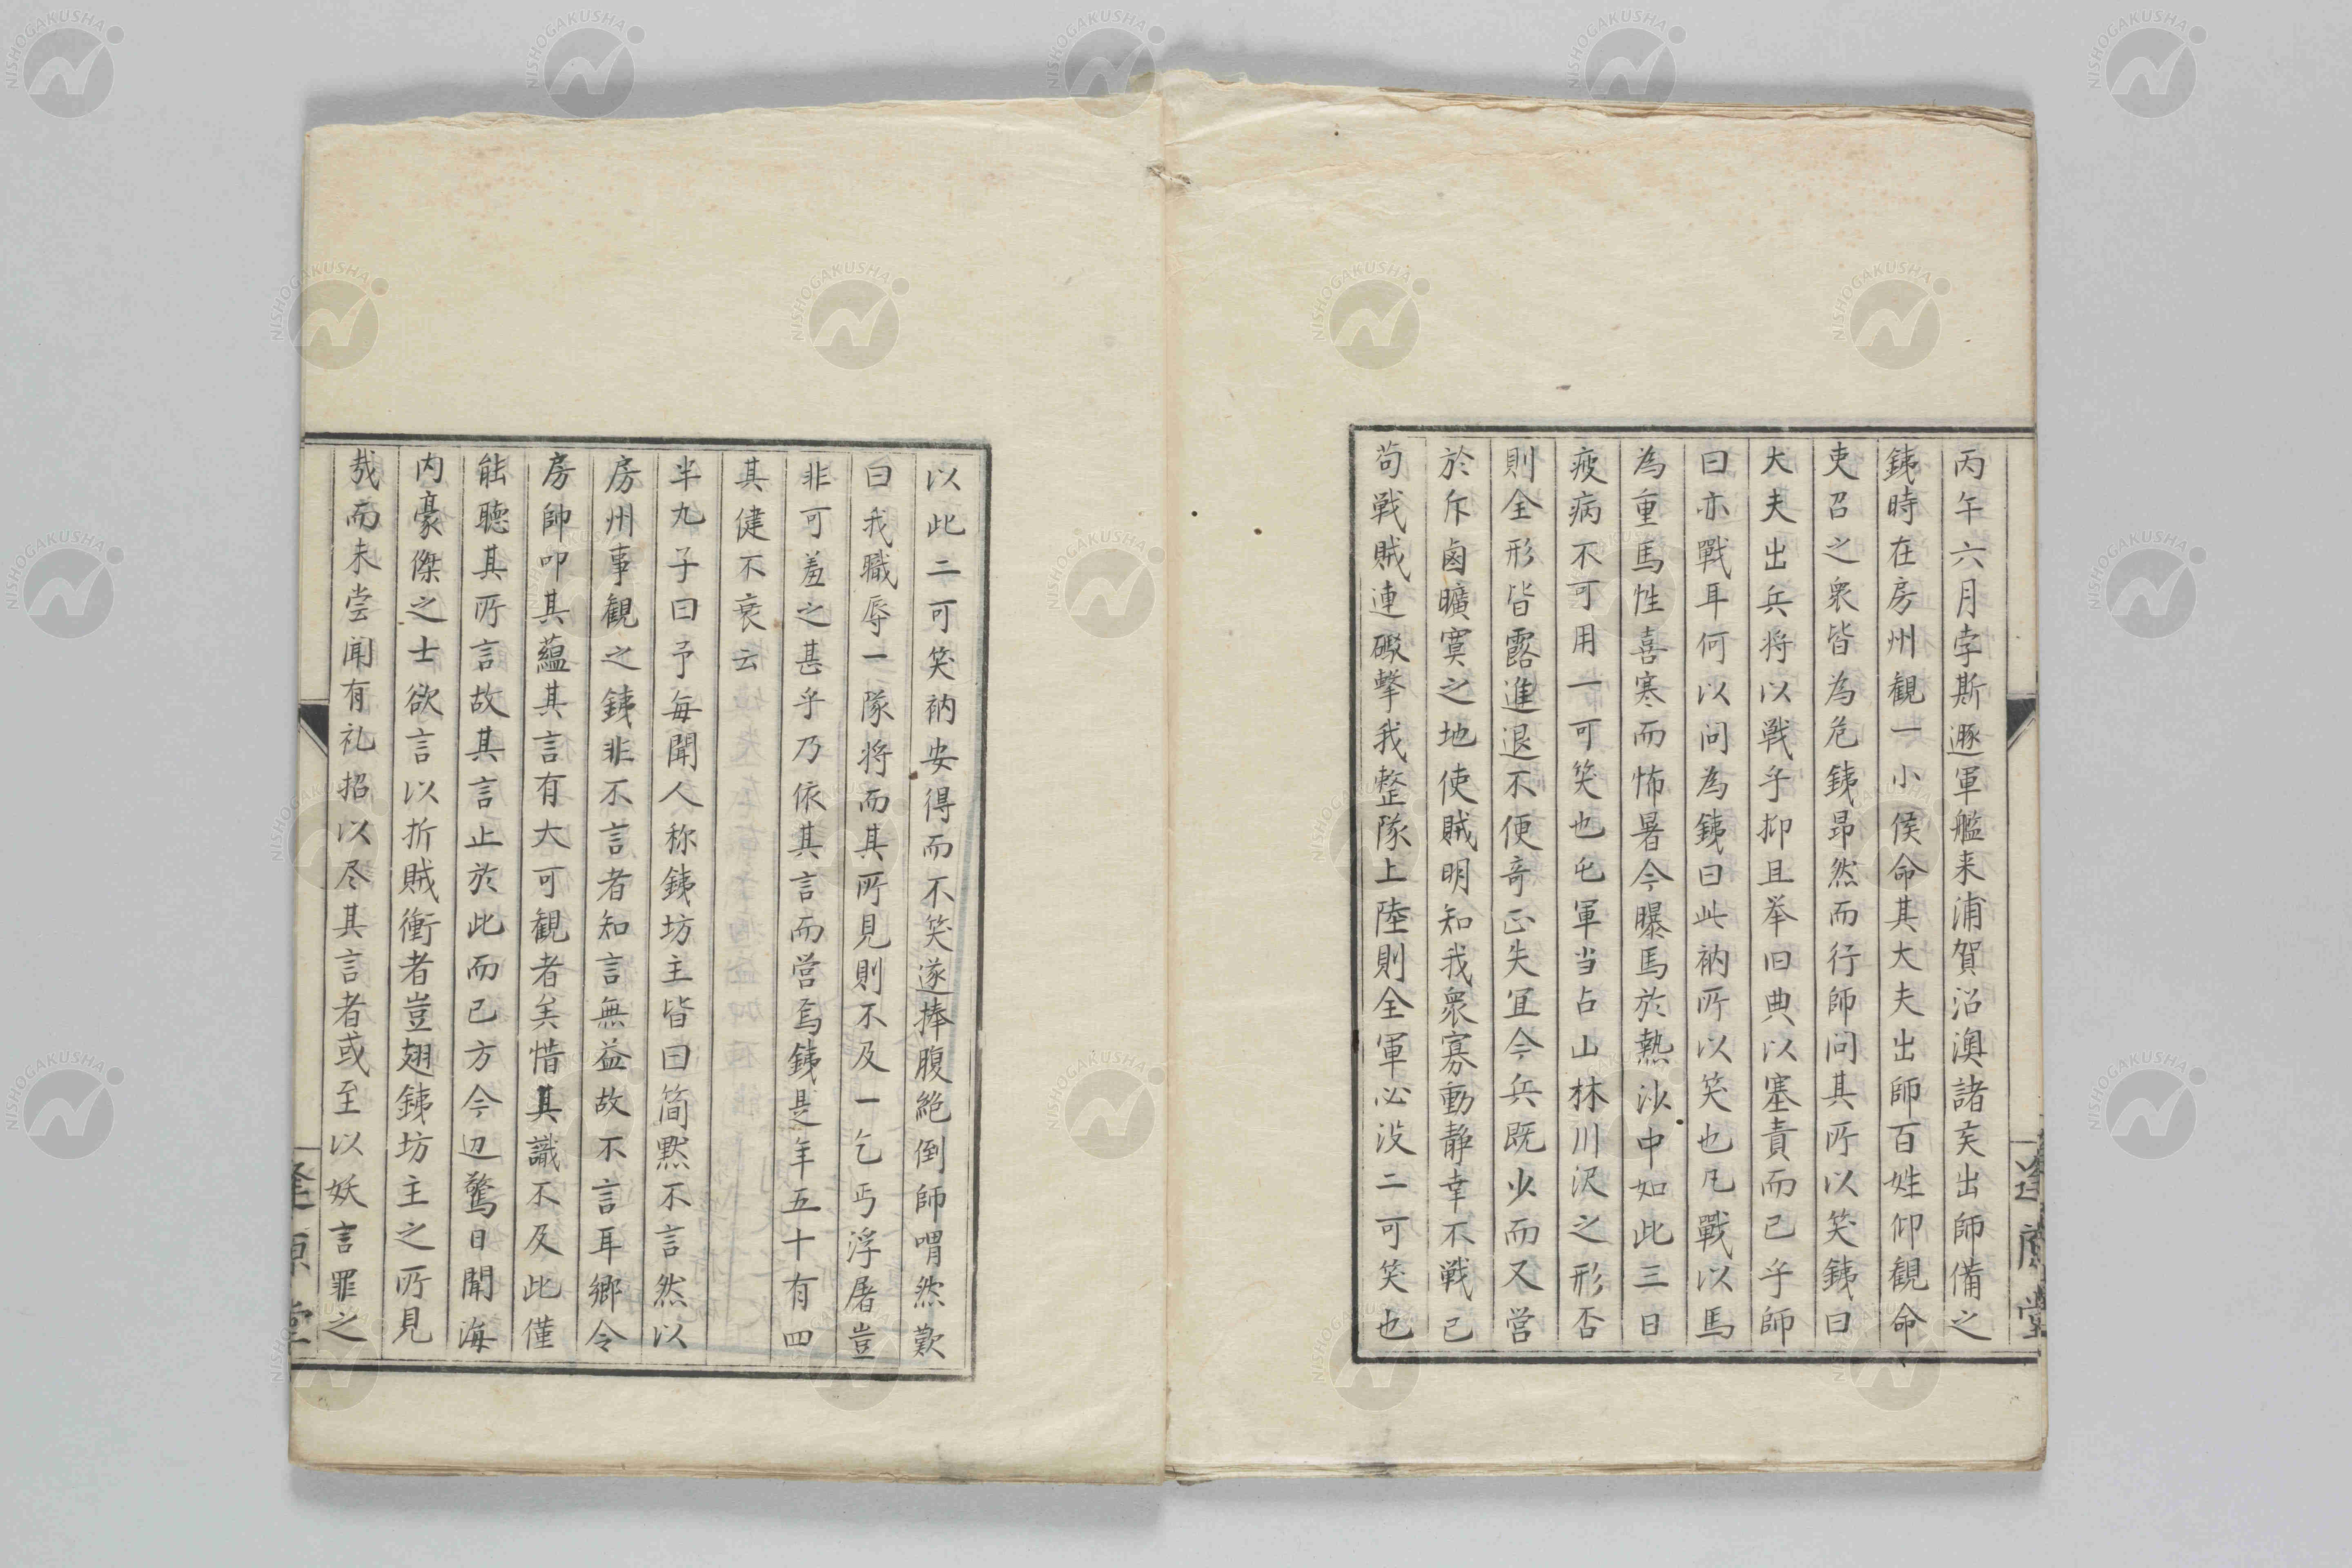 丙午六月孛斯遯軍艦来浦賀沿澳諸矦出師備之
銕時在房州観一小侯命其大夫出師百姓仰観命
吏召之衆皆為危銕昂然而行師问其所以笑銕曰
大夫出兵将以戦乎抑且举旧典以塞責而已乎師
曰亦戰耳何以问為銕曰此衲所以笑也凡戰以馬
為重馬性喜寒而怖暑今曝馬於熱沙中如此三日
疲病不可用一可笑也屯軍当占山林川沢之形否
則全形皆露進退不便竒正失宜今兵既少而又営
於斥鹵曠寞之地使賊明知我衆寡動静幸不戦已
苟戦賊連礟撃我整隊上陸則全軍必没二可笑也
逢原堂
以此二可笑衲安得而不笑遂捧腹絶倒師喟然歎
曰我職辱一隊将而其所見則不及一乞丐浮屠豈
非可羞之甚乎乃依其言而営焉銕是年五十有四
其健不衰云
半九子曰予每聞人称銕坊主皆曰简黙不言然以
房州事観之銕非不言者知言無益故不言耳郷令
房帥叩其蘊其言有大可観者矣惜其識不及此僅
能聴其所言故其言止於此而已方今辺驚日聞海
内豪傑之士欲言以折賊衝者豈翅銕坊主之所見
㢤而未尝闻有礼招以尽其言者或至以妖言罪之
逢原堂
NISHOGAKUSHA